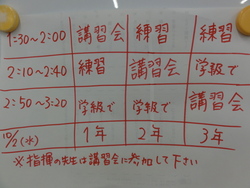 1:30～2:00 講習会 練習 練習
2:10～2:40 練習 講習会 学級で
2:50～3:20 学級で 学級で 講習会
10/2(水) 1年 2年 3年
※指揮の先生は講習会に参加して下さい